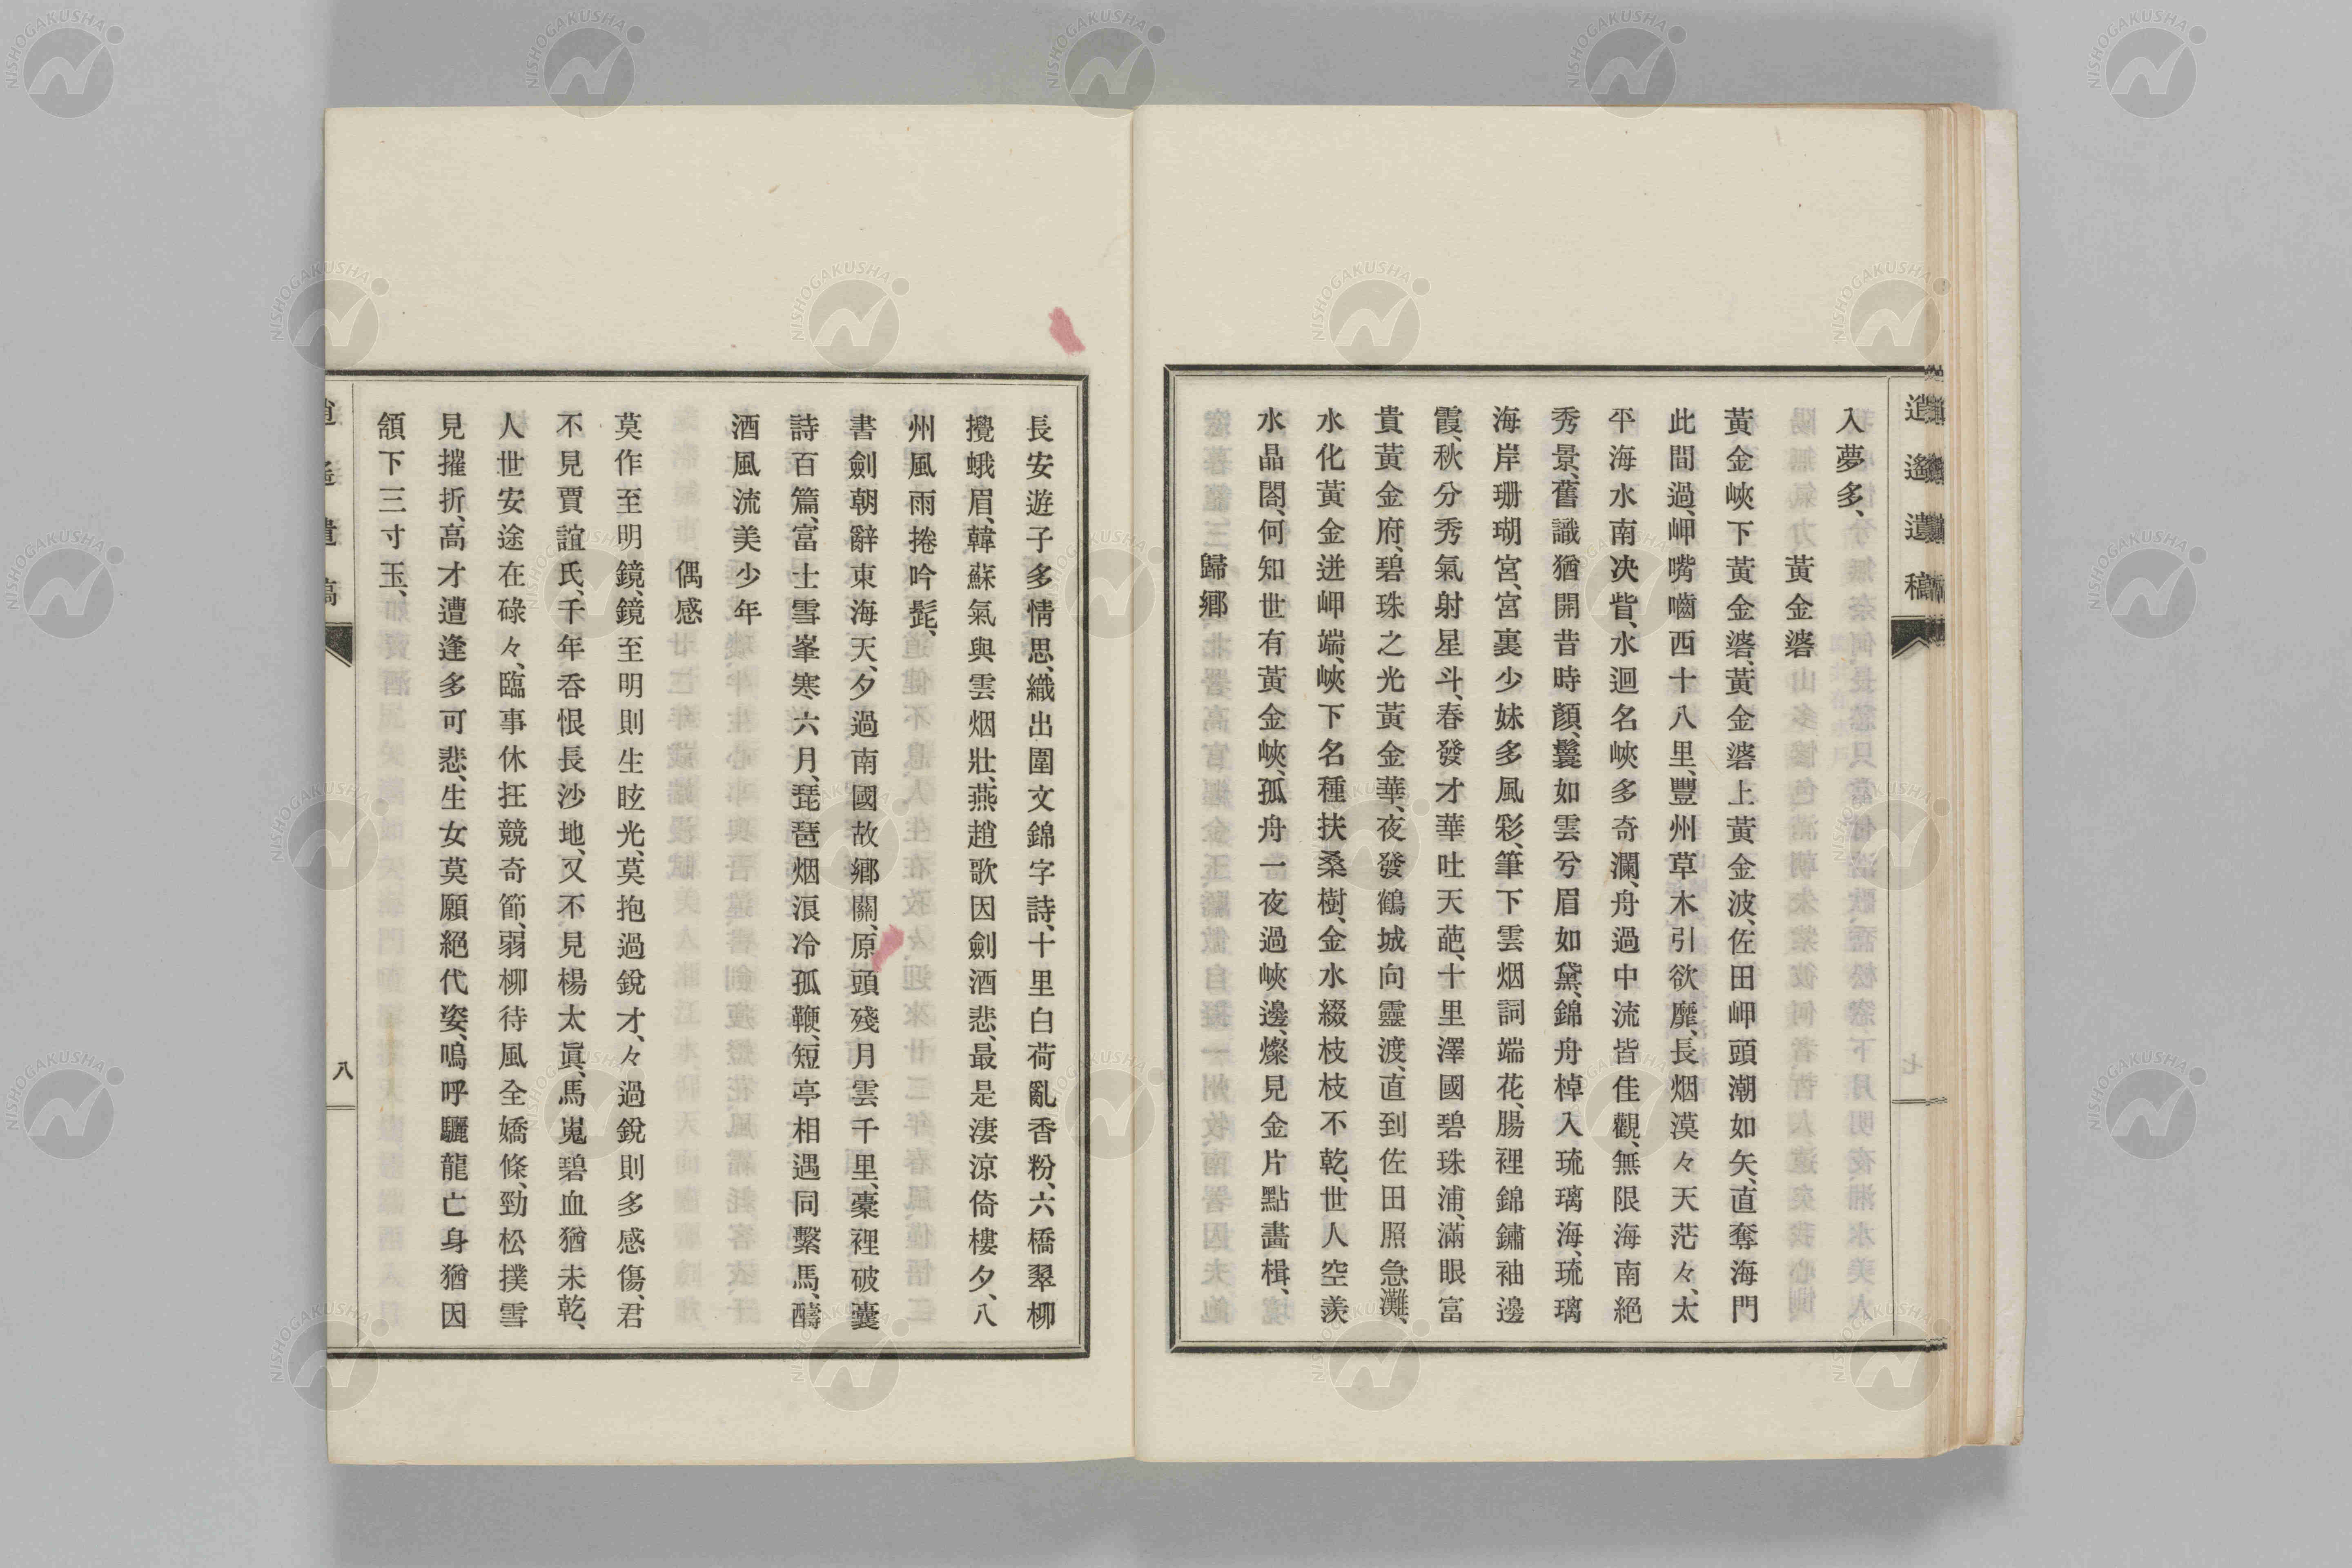 逍遙遺稿
入夢多、
黃金磐
黃金峽下黃金磐、黃金磐上黃金波、佐田岬頭潮如矢、直奪海門
此間過、岬嘴嚙西十八里、豐州草木引欲靡、長烟漠々天茫々、太
平海水南決眥、水迴名峽多奇瀾、舟過中流皆佳觀、無限海南絕
秀景、舊識猶開昔時顏、鬟如雲兮眉如黛、錦舟棹入琉璃海、琉璃
海岸珊瑚宮、宮裏少妹多風彩、筆下雲烟詞端花、腸裡錦鏽袖邊
霞、秋分秀氣射星斗、春發才華吐天葩、十里澤國碧珠浦、滿眼富
貴黃金府、碧珠之光黃金華、夜發鶴城向靈渡、直到佐田照急灘、
水化黃金迸岬端、峽下名種扶桑樹、金水綴枝枝不乾、世人空羨
水晶閣、何知世有黃金峽、孤舟一夜過峽邊、燦見金片點畫楫、
歸鄉
長安遊子多情思、織出圍文錦字詩、十里白荷亂香粉、六橋翠柳
攪蛾眉、韓蘇氣與雲烟壯、燕趙歌因劍酒悲、最是淒涼倚樓夕、八
州風雨捲吟髭、
書劍朝辭東海天、夕過南國故鄉關、原頭殘月雲千里、橐裡破囊
詩百篇、富士雪峯寒六月、琵琶烟浪冷孤鞭、短亭相遇同繫馬、醻
酒風流美少年
偶感
莫作至明鏡、鏡至明則生眩光、莫抱過銳才、々過銳則多感傷、君
不見賈誼氏、千年呑恨長沙地、又不見楊太眞、馬嵬碧血猶未乾、
人世安途在碌々、臨事休抂競奇節、弱柳待風全嬌條、勁松撲雪
見摧折、高才遭逢多可悲、生女莫願絕代姿、嗚呼驪龍亡身猶因
頷下三寸玉、
逍遙遺稿
八
NISHOGAKUSHA